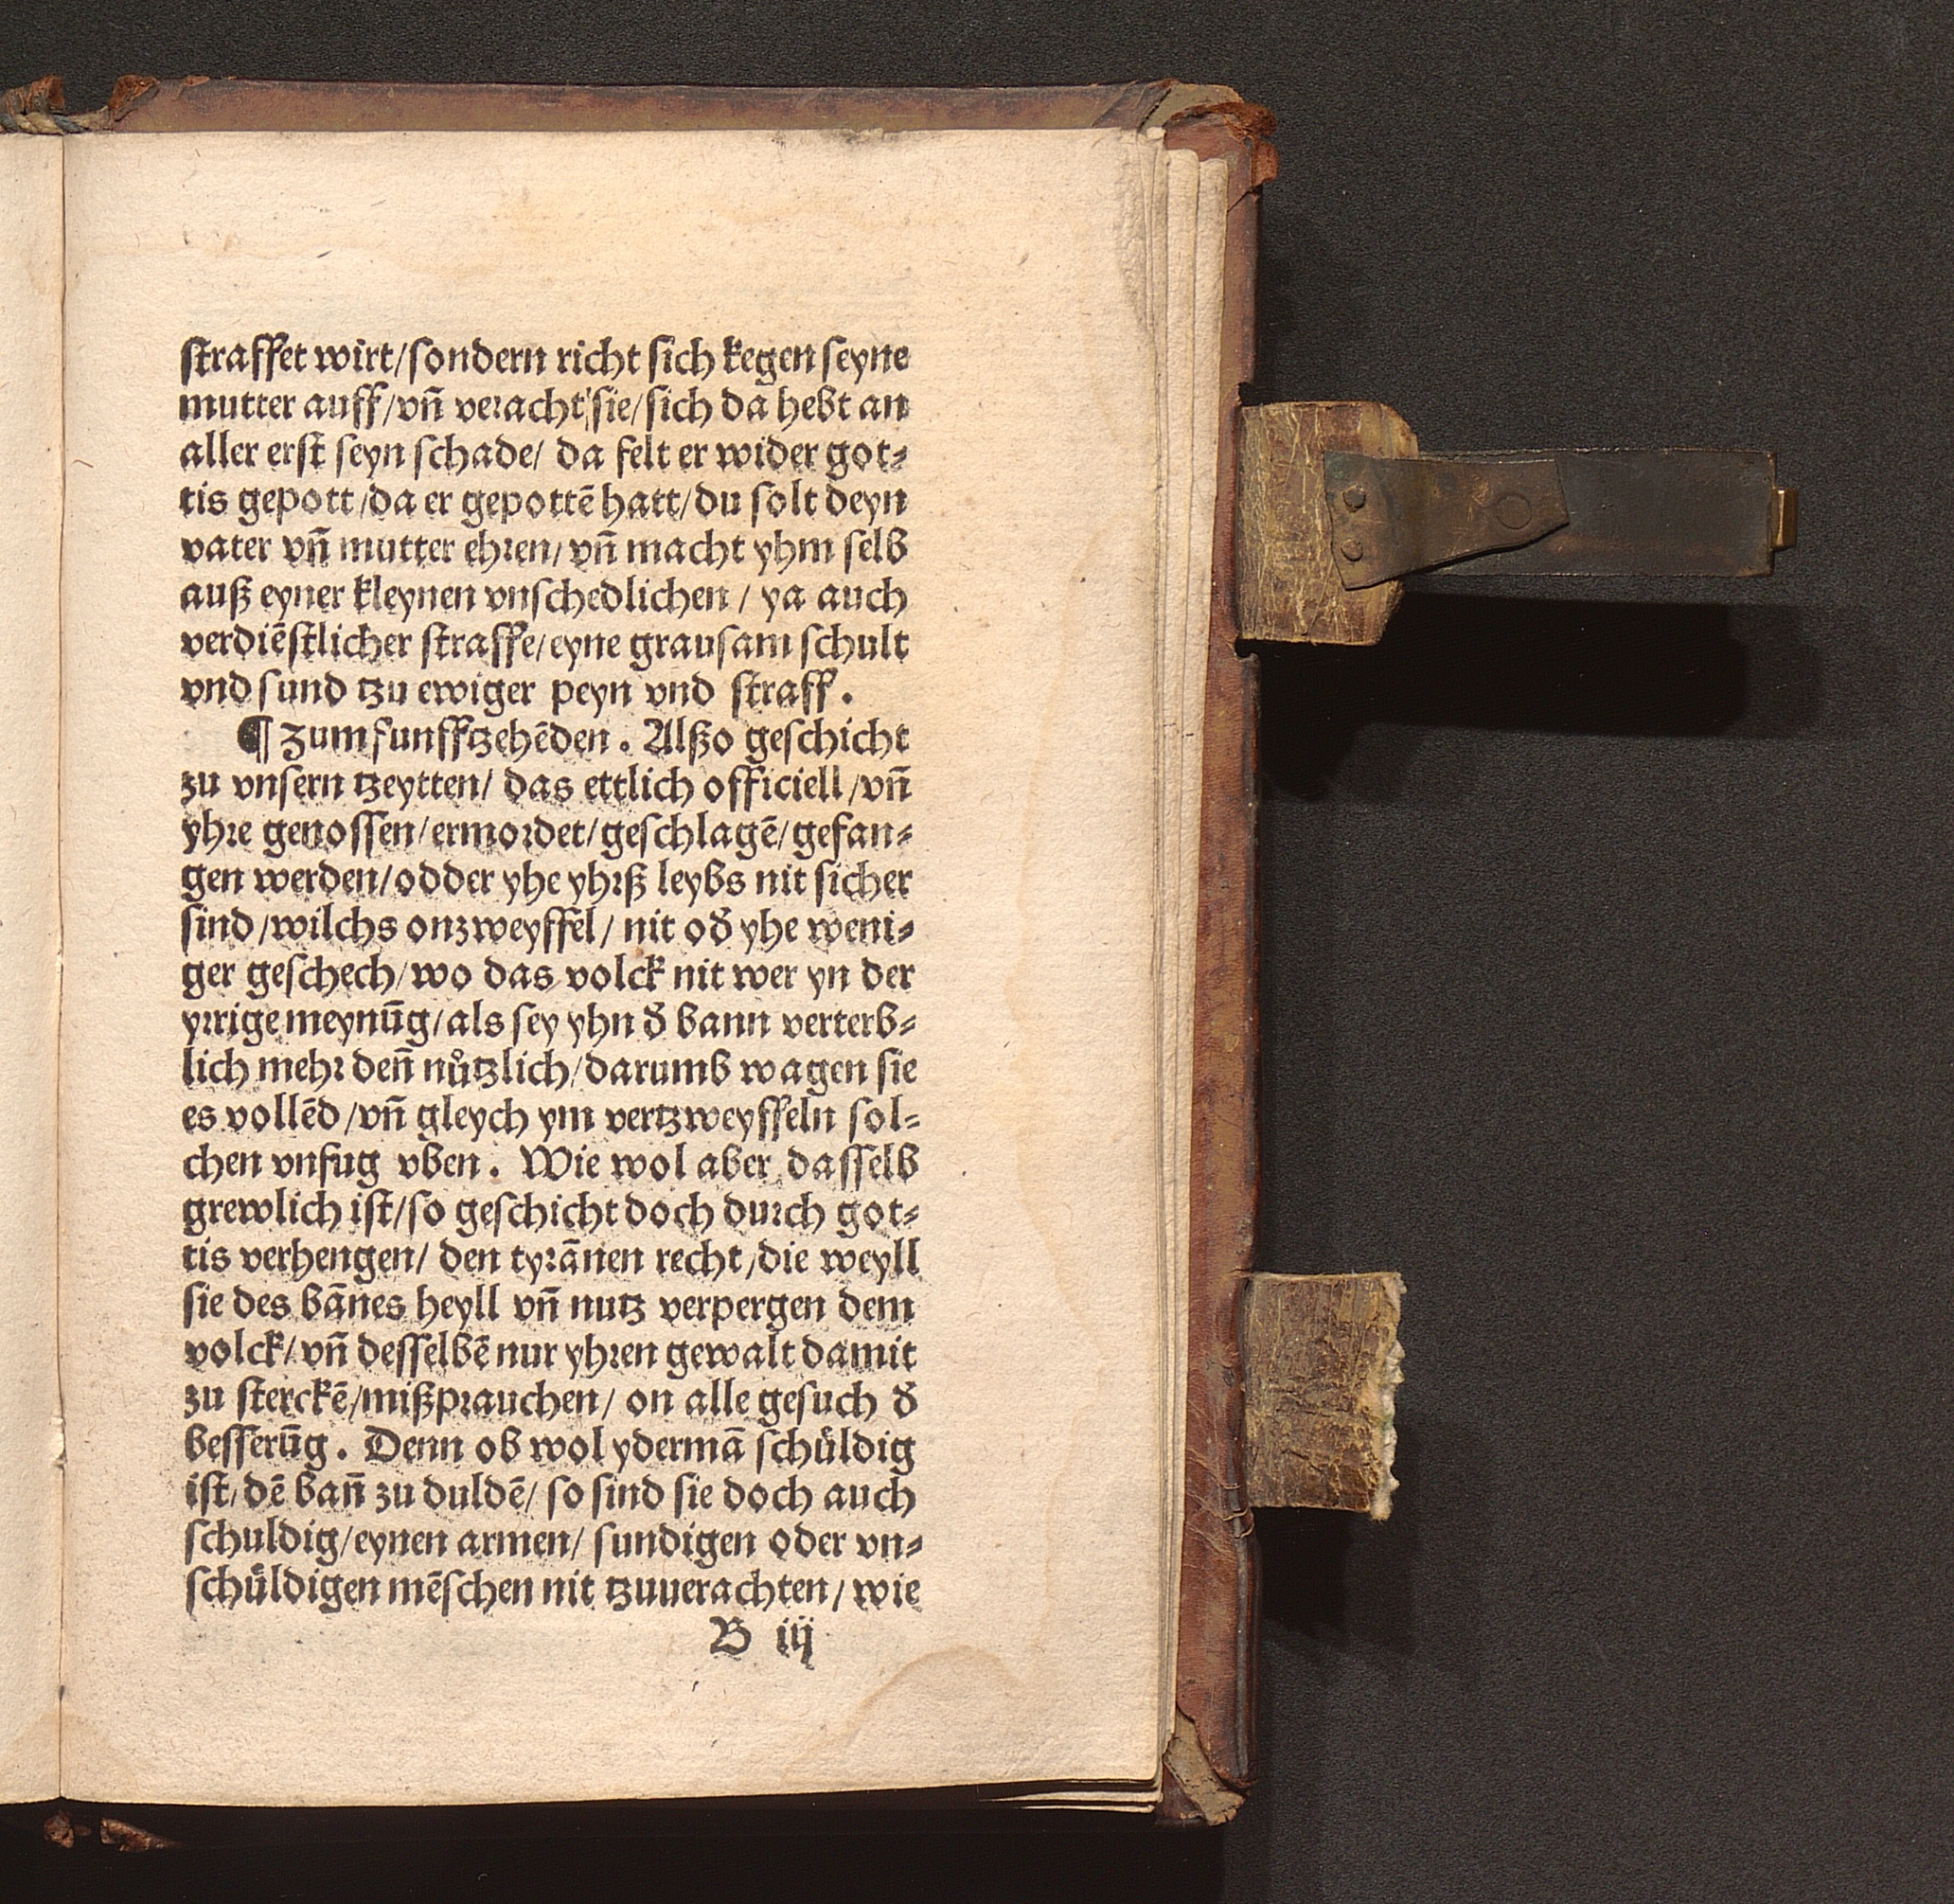 straffet wirt/sondern richt sich kegen seyne
mutter auff/vn̄ veracht sie/sich da hebt an
aller erst seyn schade/ da felt er wider got⸗
tis gepott/da er gepottē hatt/du solt deyn
vater vn̄ mutter ehren/vn̄ macht yhm selb
auß eyner kleynen vnschedlichen/ ya auch
verdiēstlicher straffe/eyne grausam schult
vnd sund tzu ewiger peyn vnd straff.
¶ Zum funfftzehēden. Alßo geschicht
zu vnsern tzeytten/ das ettlich officiell/vn̄
yhre genossen/ermordet/geschlagē/gefan⸗
gen werden/odder yhe yhrß leybs nit sicher
sind/wilchs onzweyffel/ nit od̄ yhe weni⸗
ger geschech/wo das volck nit wer yn der
yrrige meynūg/als sey yhn d̄ bann verterb⸗
lich mehr den̄ nůtzlich/darumb wagen sie
es vollēd/vn̄ gleych ym vertzweyffeln sol⸗
chen vnfug vben. Wie wol aber dasselb
grewlich ist/so geschicht doch durch got⸗
tis verhengen/ den tyrānen recht/die weyll
sie des bānes heyll vn̄ nutz verpergen dem
volck/vn̄ desselbē nur yhren gewalt damit
zu sterckē/mißprauchen/ on alle gesuch d̄
besserūg. Denn ob wol ydermā schuͤldig
ist/dē ban̄ zu duldē/ so sind sie doch auch
schuldig/eynen armen/ sundigen oder vn⸗
schuͤldigen mēschen nit tzuuerachten/ wie
B iij